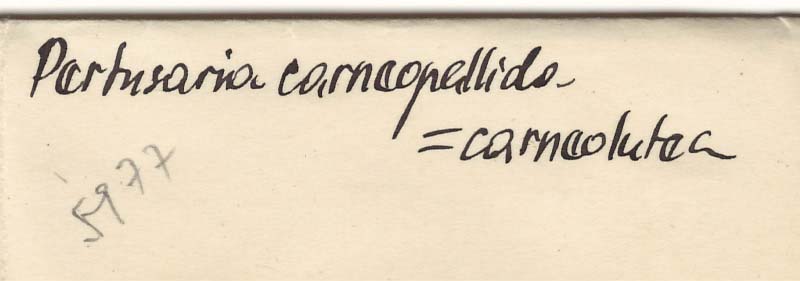 Pertusaria carneopallida
= carneolutea
5977